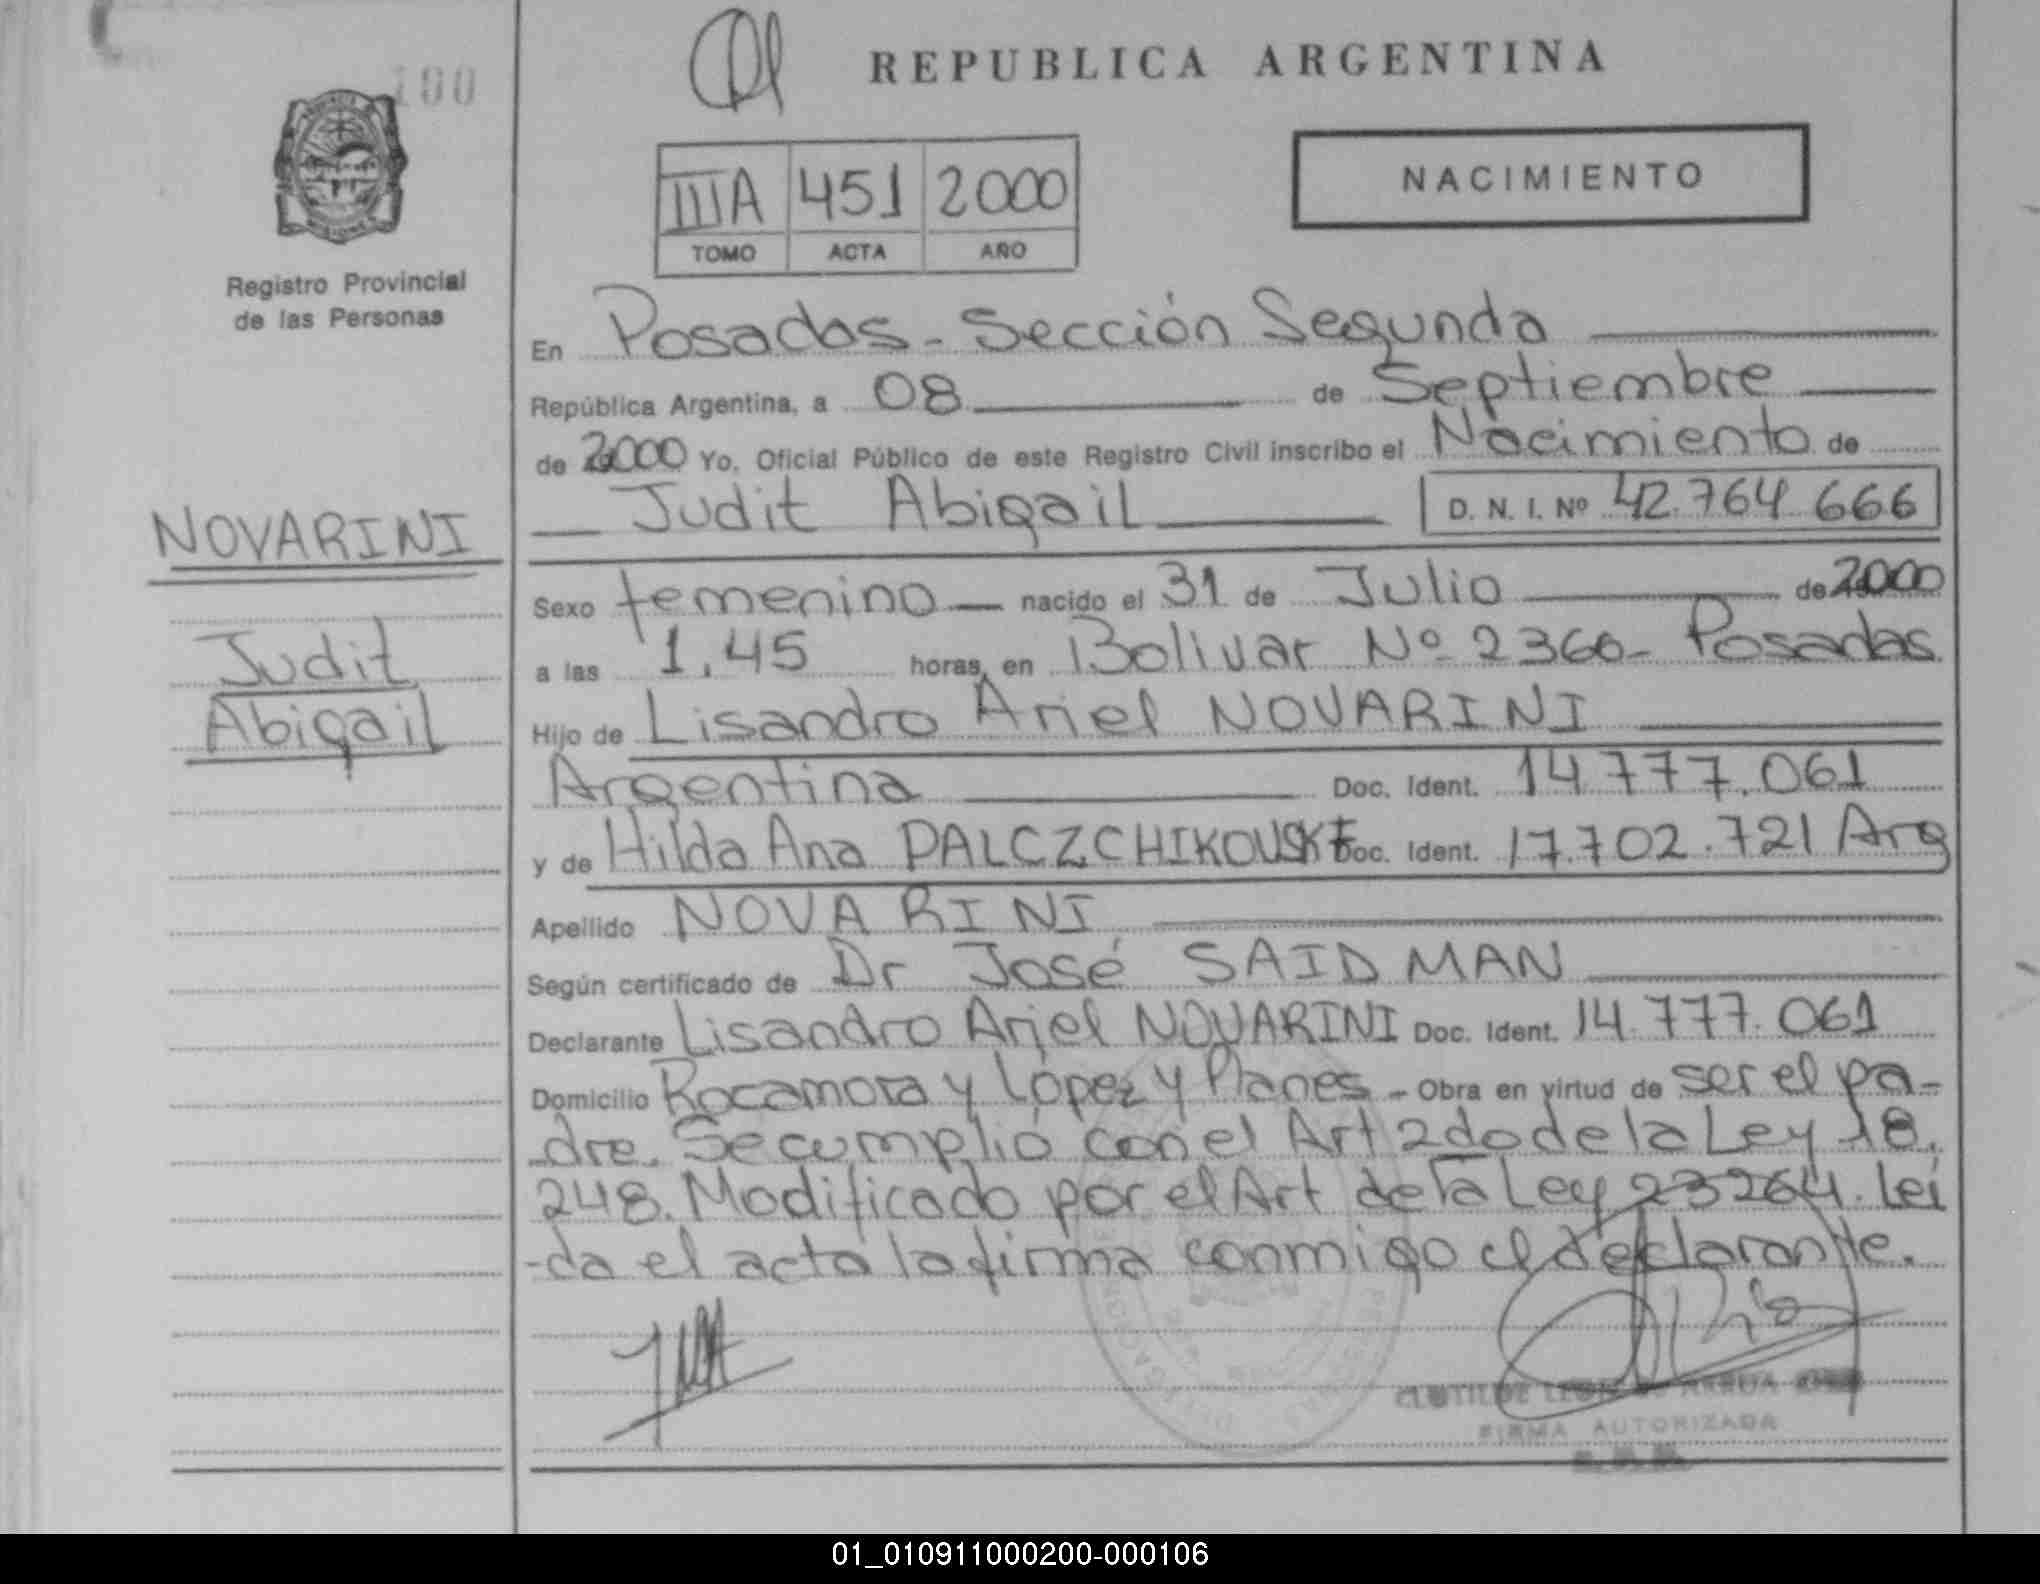 100
REPUBLICA ARGENTINA
NACIMIENTO
IIIA 451 2000
TOMO ACTA AÑO
Registro Provincial
de las Personas
En Posadas - Sección Segunda
República Argentina, a 08 de Septiembre
de 2000 Yo, Oficial Público de este Registro Civil inscribo el Nacimiento de
Judit Abigail D. N. I. Nº 42.764.666
NOVARINI
Judit
Abigail
Sexo femenino nacido el 31 de Julio de 2000
a las 1,45 horas, en Bolivar Nº 2366 - Posadas
Hijo de Lisandro Ariel NOVARINI
Argentina Doc. Ident. 14.777.061
y de Hilda Ana PALCZCHIKOUSKI Doc. Ident. 17.702.721 Arg
Apellido NOVARINI
Según certificado de Dr José SAIDMAN
Declarante Lisandro Ariel NOVARINI Doc. Ident. 14.777.061
Domicilio Rocamora y López y Planes - Obra en virtud de ser el pa-
dre. Se cumplió con el Art 2do de la Ley 18.
248. Modificado por el Art de la Ley 23264. Leí
-da el acta la firma conmigo el declarante.
CLOTILDE LEON ARRUA
FIRMA AUTORIZADA
01_010911000200-000106